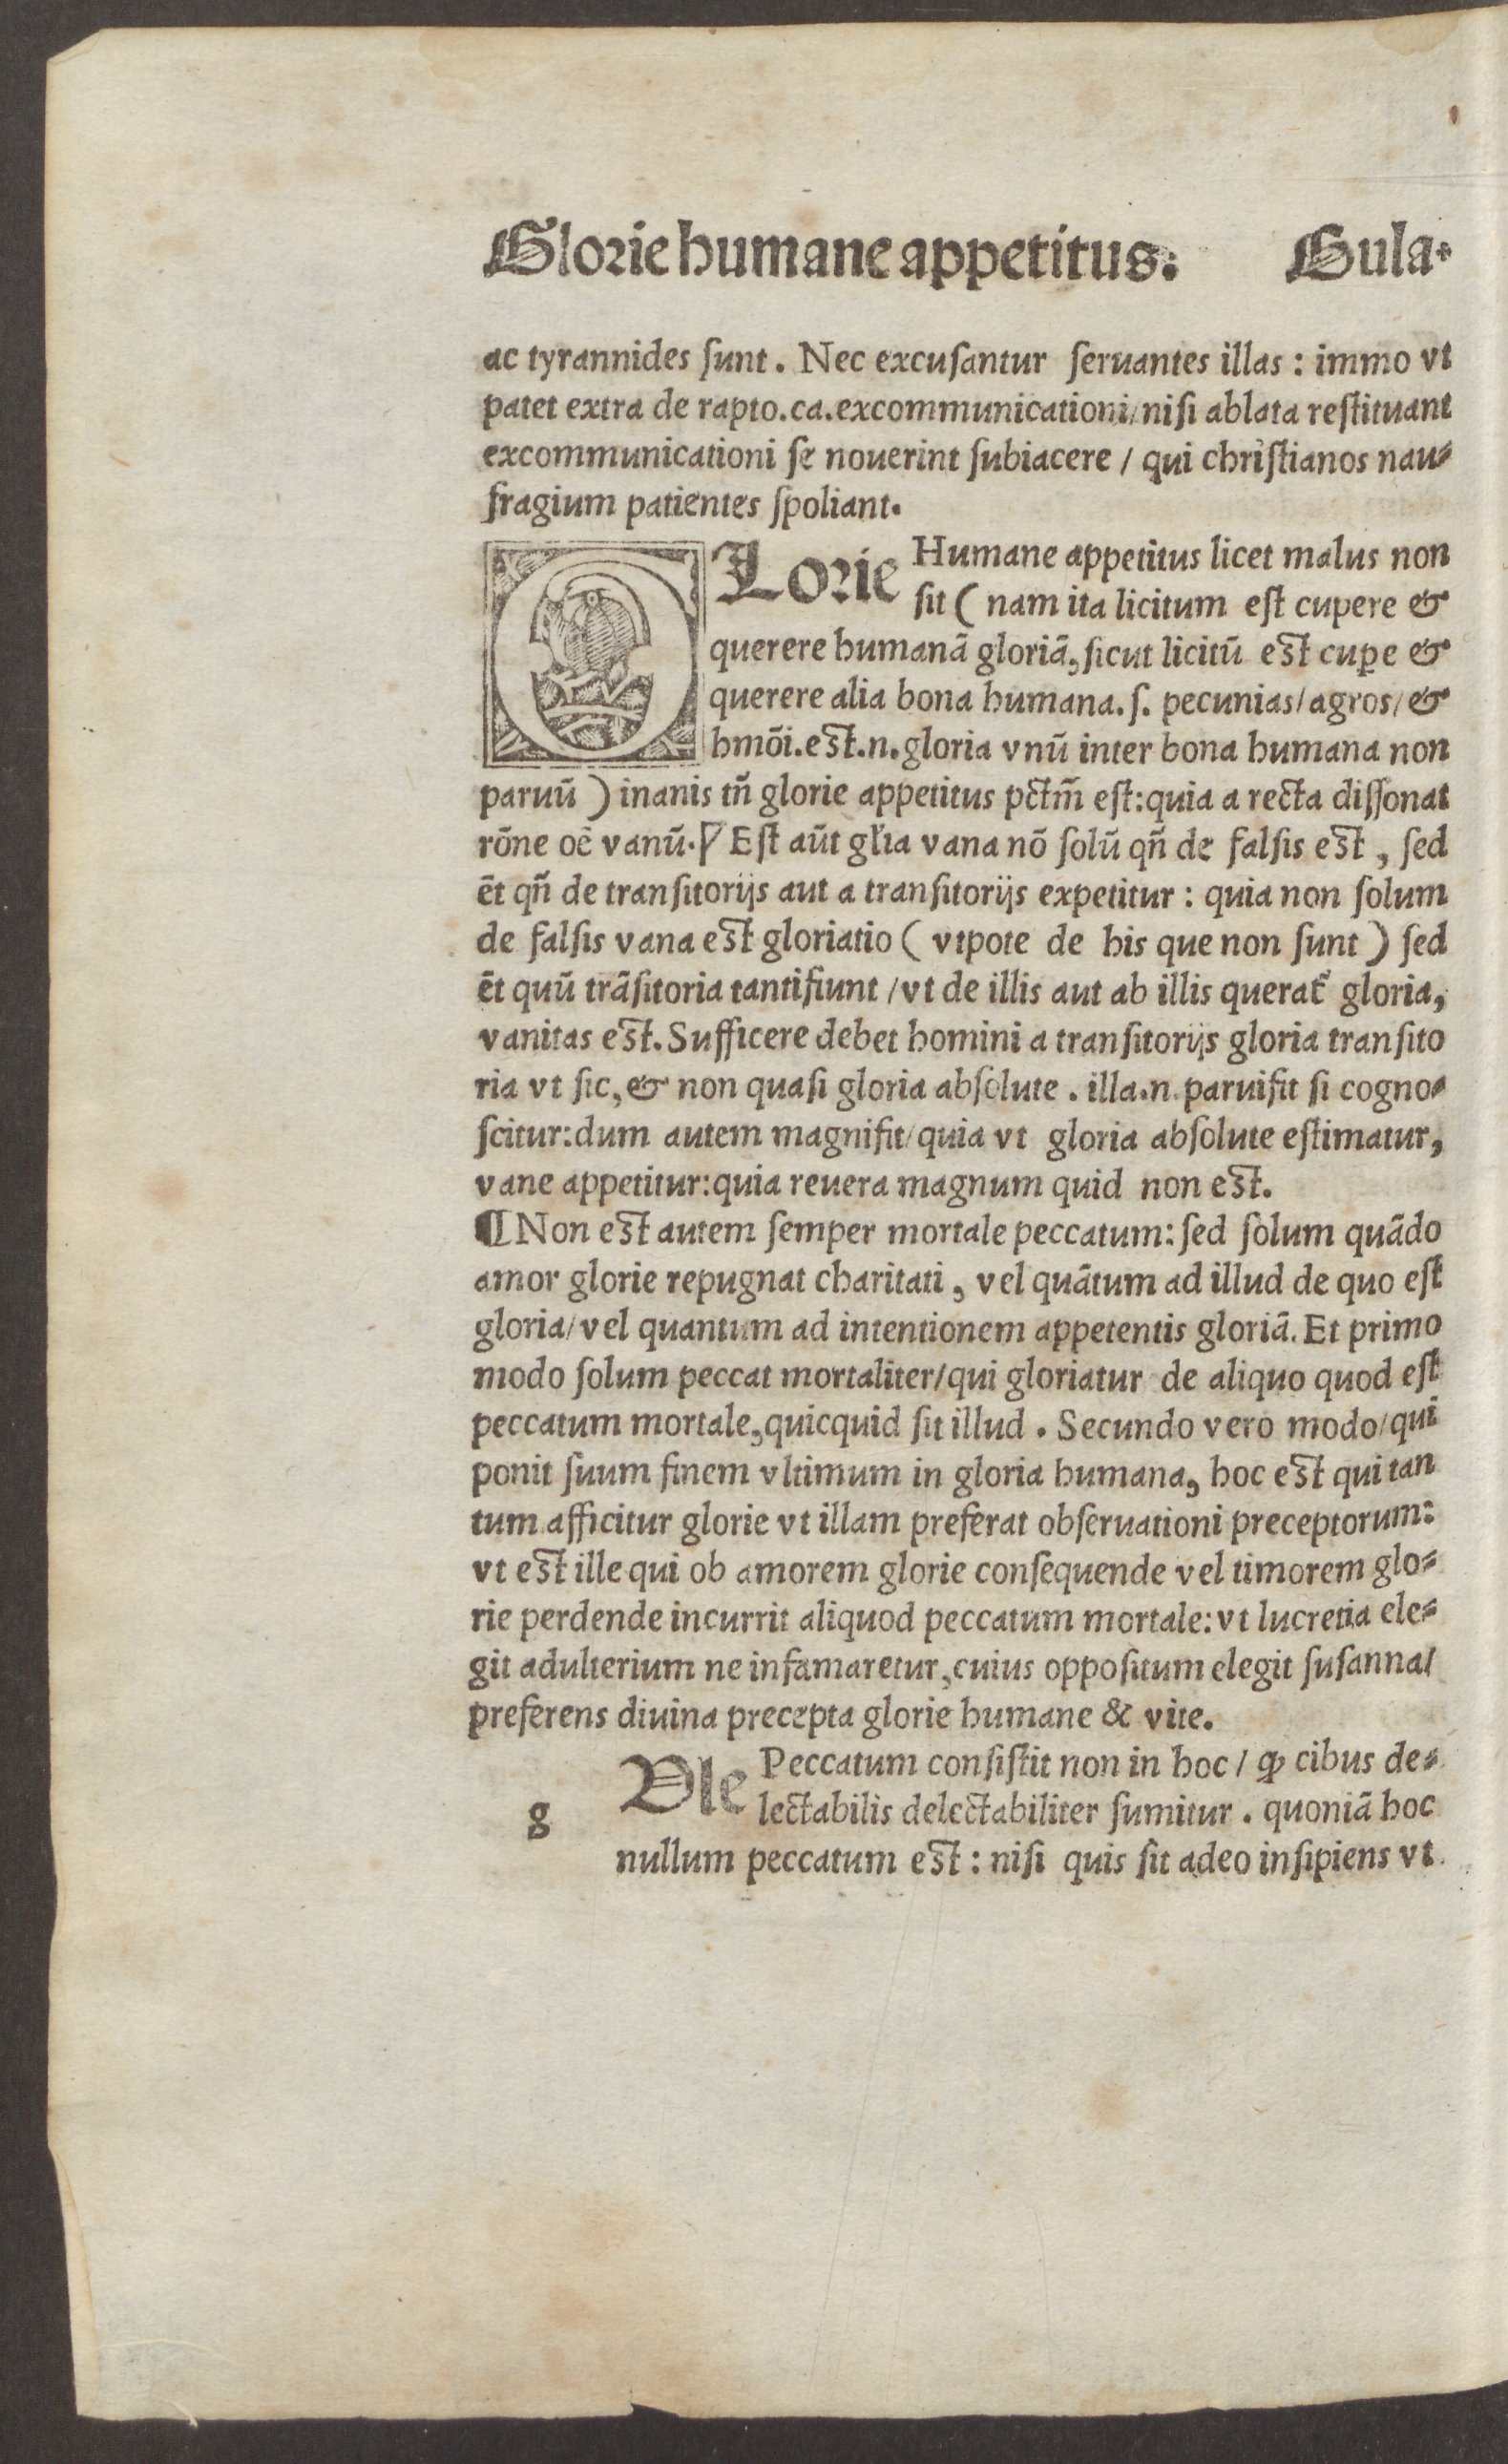 Glorie humane appetitus. Gula.
ac tyrannides ſunt. Nec excuſantur ſeruantes illas: immo vt
patet extra de rapto.ca.excommunicationi/niſi ablata reſtituant
excommunicationi ſe nouerint ſubiacere / qui chriſtianos nau⸗
fragium patientes ſpoliant.
Lorie Humane appetitus licet malus non
ſit ( nam ita licitum eſt cupere &
querere humanā gloriā, ſicut licitū eſt cuꝑe &
querere alia bona humana. ſ. pecunias/agros/&
hmōi.eſt.n.gloria vnū inter bona humana non
paruū ) inanis tñ glorie appetitus pctm̄ eſt:quia a recta diſſonat
rōne oē vanū. Eſt aūt gl̃ia vana nō ſolū qñ de falſis eſt, ſed
ēt qñ de tranſitorijs aut a tranſitorijs expetitur: quia non ſolum
de falſis vana eſt gloriatio ( vtpote de his que non ſunt ) ſed
ēt quū trāſitoria tantifiunt /vt de illis aut ab illis querat̃ gloria,
vanitas eſt. Sufficere debet homini a tranſitorijs gloria tranſito
ria vt ſic, & non quaſi gloria abſolute. illa.n.paruifit ſi cogno⸗
ſcitur:dum autem magnifit/quia vt gloria abſolute eſtimatur,
vane appetitur:quia reuera magnum quid non eſt.
¶Non eſt autem ſemper mortale peccatum: ſed ſolum quādo
amor glorie repugnat charitati, vel quātum ad illud de quo eſt
gloria/vel quantum ad intentionem appetentis gloriā. Et primo
modo ſolum peccat mortaliter/qui gloriatur de aliquo quod eſt
peccatum mortale,quicquid ſit illud. Secundo vero modo/qui
ponit ſuum finem vltimum in gloria humana, hoc eſt qui tan
tum afficitur glorie vt illam preferat obſeruationi preceptorum:
vt eſt ille qui ob amorem glorie conſequende vel timorem glo⸗
rie perdende incurrit aliquod peccatum mortale: vt lucretia ele⸗
git adulterium ne infamaretur,cuius oppoſitum elegit ſuſanna/
preferens diuina precepta glorie humane & vite.
g Vle Peccatum conſiſtit non in hoc / ꝙ cibus de⸗
lectabilis delectabiliter ſumitur. quoniā hoc
nullum peccatum eſt: niſi quis ſit adeo inſipiens vt